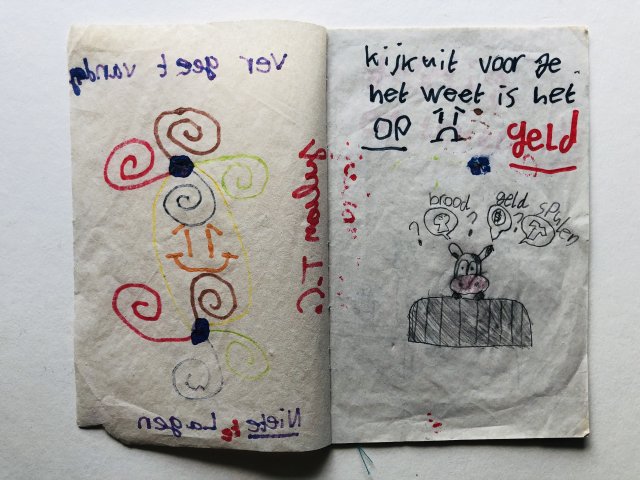 Ver geet vandag
Niete te Lagen
kijk uit voor je
het weet is het
OP geld
brood ? geld ? spullen
?